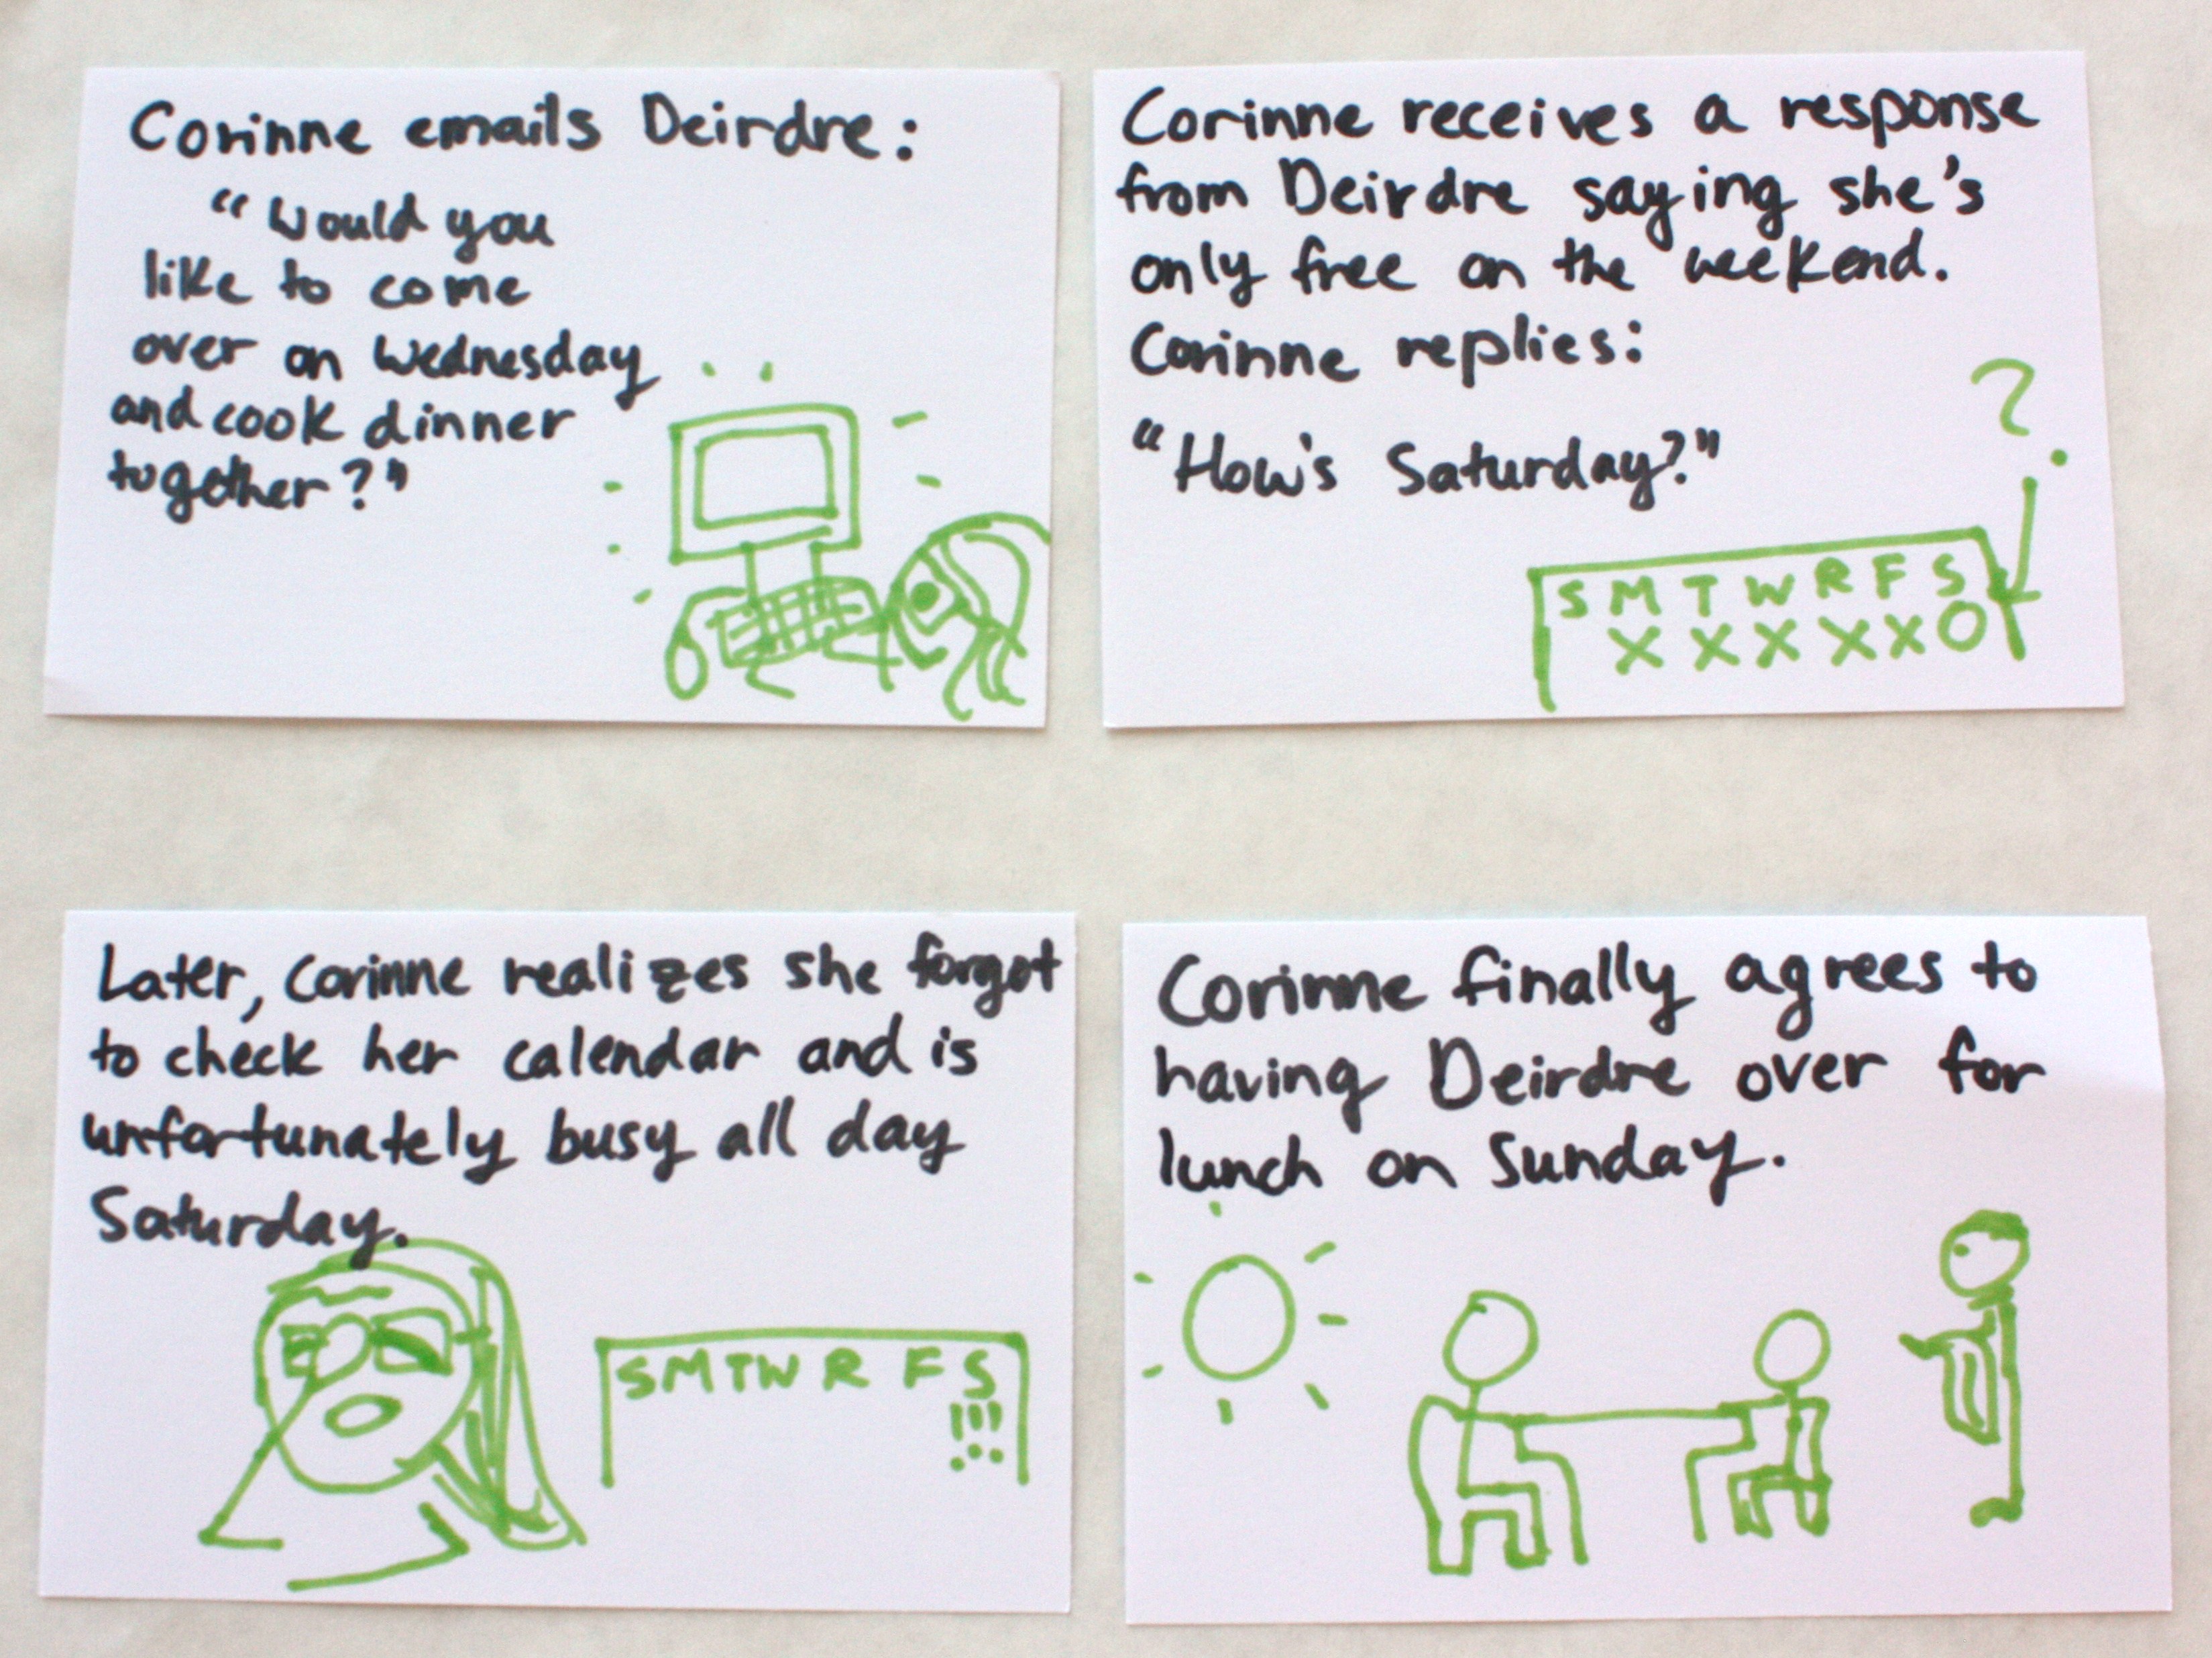 Corinne emails Deirdre:
"Would you
like to come
over on Wednesday
and cook dinner
together?"
Corinne receives a response
from Deirdre saying she's
only free on the weekend.
Corinne replies:
"How's Saturday?"
?
S M T W R F S
X X X X X O
Later, Corinne realizes she forgot
to check her calendar and is
unfortunately busy all day
Saturday.
S M T W R F S
!!!
Corinne finally agrees to
having Deirdre over for
lunch on Sunday.